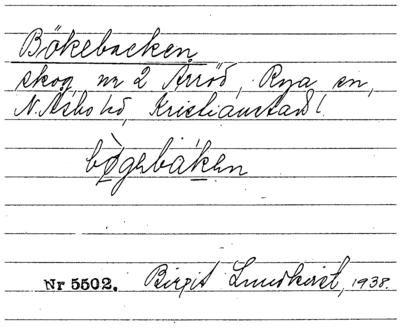 Bökebacken
skog, nr 2 Årröd, Rya sn,
N. Åsbo hd, Kristianstads l.
bø̀gebáken
Nr 5502. Birgit Lundkvist, 1938.